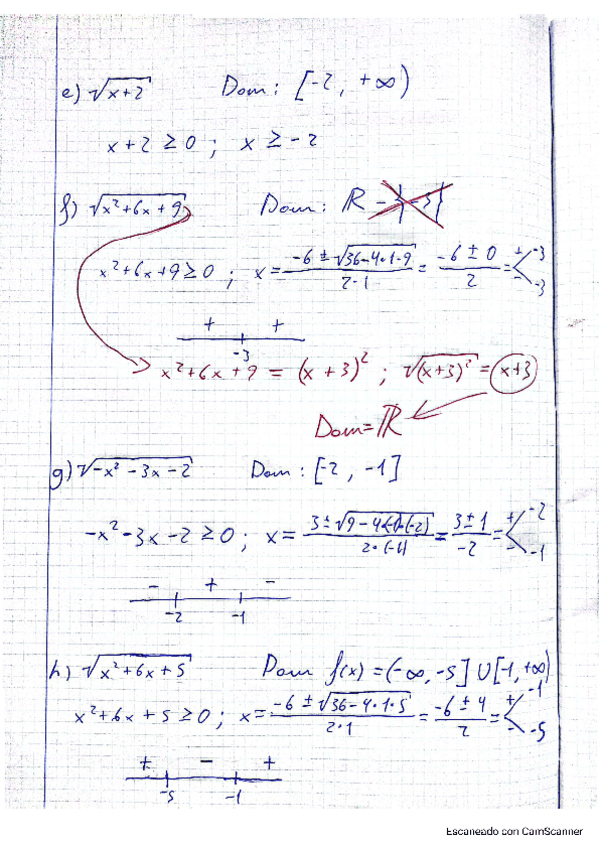 e) √(x+2) Dom: [-2, +∞)
x+2 ≥ 0 ; x ≥ -2
f) √(x²+6x+9) Dom: ℝ - {-3}
x²+6x+9 ≥ 0 ; x = (-6 ± √(36-4·1·9))/(2·1) = (-6 ± 0)/2 = < + -3
- -3
+ +
-3
x²+6x+9 = (x+3)² ; √(x+3)² = x+3
Dom = ℝ
g) √(-x²-3x-2) Dom: [-2, -1]
-x²-3x-2 ≥ 0 ; x = (3 ± √(9-4(-1)·(-2)))/(2·(-1)) = (3 ± 1)/-2 = < + -2
- -1
- + -
-2 -1
h) √(x²+6x+5) Dom f(x) = (-∞, -5] U [-1, +∞)
x²+6x+5 ≥ 0 ; x = (-6 ± √(36-4·1·5))/(2·1) = (-6 ± 4)/2 = < + -1
- -5
+ - +
-5 -1
Escaneado con CamScanner